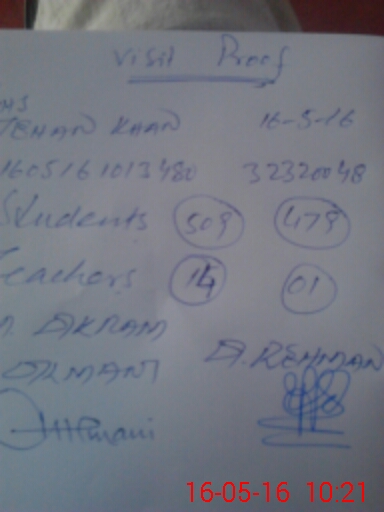 Visit Proof
HS
JEHAN KHAN 16-5-16
1605161013480 32320048
Students 509 479
Teachers 14 01
M. AKRAM
A. REHMAN
16-05-16 10:21